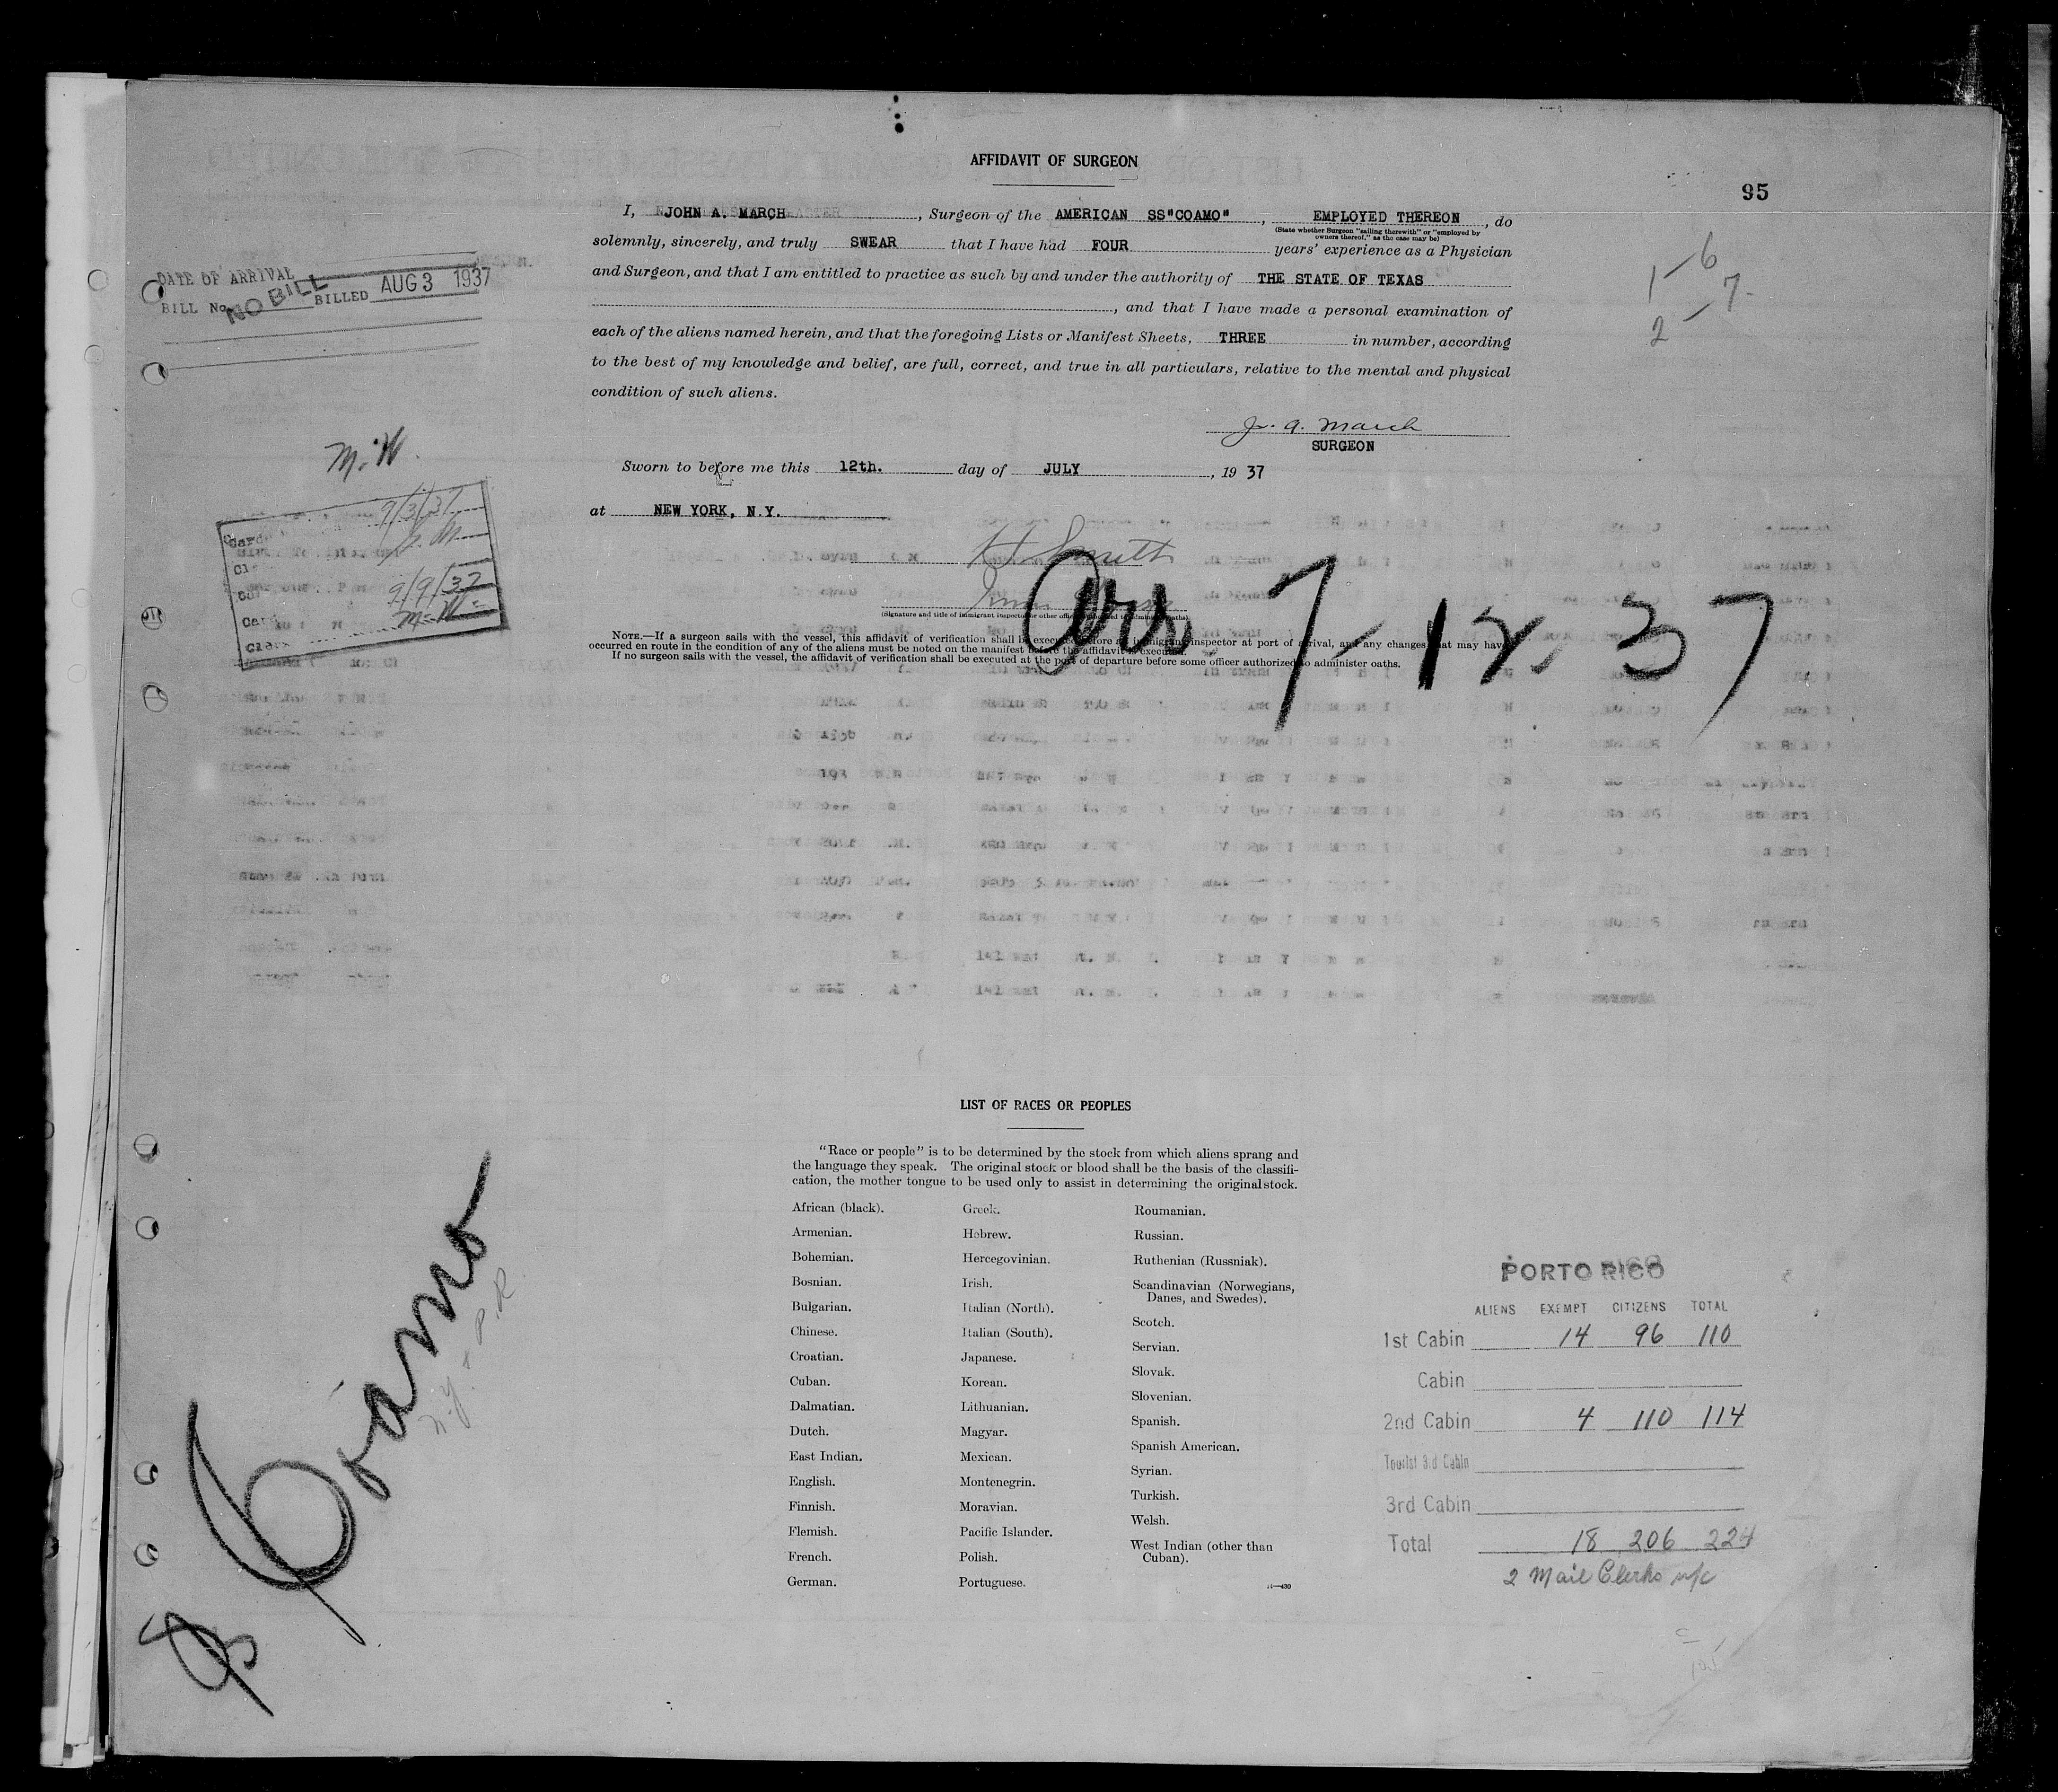 AFFIDAVIT OF SURGEON
95
I, JOHN A. MARCH, Surgeon of the AMERICAN SS"COAMO", EMPLOYED THEREON, do
(State whether Surgeon "sailing therewith" or "employed by
owners thereof," as the case may be)
solemnly, sincerely, and truly SWEAR that I have had FOUR years' experience as a Physician
and Surgeon, and that I am entitled to practice as such by and under the authority of THE STATE OF TEXAS
, and that I have made a personal examination of
each of the aliens named herein, and that the foregoing Lists or Manifest Sheets, THREE in number, according
to the best of my knowledge and belief, are full, correct, and true in all particulars, relative to the mental and physical
condition of such aliens.
J. A. March
SURGEON
Sworn to before me this 12th. day of JULY, 1937
at NEW YORK, N.Y.
Smith
(Signature and title of immigrant inspector or other officer
NOTE.—If a surgeon sails with the vessel, this affidavit of verification shall be executed before an immigrant inspector at port of arrival, and any changes that may have
occurred en route in the condition of any of the aliens must be noted on the manifest before the affidavit is executed.
If no surgeon sails with the vessel, the affidavit of verification shall be executed at the port of departure before some officer authorized to administer oaths.
Arr. 7-12-37
DATE OF ARRIVAL
BILL No. NO BILL BILLED AUG 3 1937
1-6
2-7
M.W.
9/3/37
9/9/37
M.W.
SS Coamo
N.Y. - P.R.
LIST OF RACES OR PEOPLES
"Race or people" is to be determined by the stock from which aliens sprang and
the language they speak. The original stock or blood shall be the basis of the classifi-
cation, the mother tongue to be used only to assist in determining the original stock.
African (black).
Armenian.
Bohemian.
Bosnian.
Bulgarian.
Chinese.
Croatian.
Cuban.
Dalmatian.
Dutch.
East Indian.
English.
Finnish.
Flemish.
French.
German.
Greek.
Hebrew.
Hercegovinian.
Irish.
Italian (North).
Italian (South).
Japanese.
Korean.
Lithuanian.
Magyar.
Mexican.
Montenegrin.
Moravian.
Pacific Islander.
Polish.
Portuguese.
Roumanian.
Russian.
Ruthenian (Russniak).
Scandinavian (Norwegians,
Danes, and Swedes).
Scotch.
Servian.
Slovak.
Slovenian.
Spanish.
Spanish American.
Syrian.
Turkish.
Welsh.
West Indian (other than
Cuban).
PORTO RICO
ALIENS EXEMPT CITIZENS TOTAL
1st Cabin 14 96 110
Cabin
2nd Cabin 4 110 114
Tourist 3rd Cabin
3rd Cabin
Total 18 206 224
2 Mail Clerks